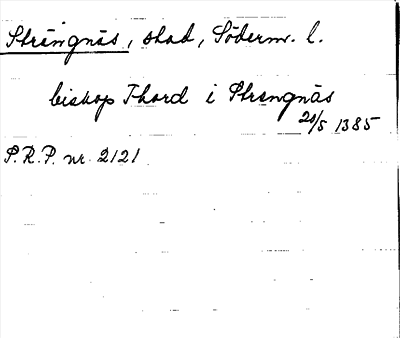 Strängnäs, stad, Söderm. l.
biskop Thord i Strengnäs
20/5 1385
P.R.P. nr 2121